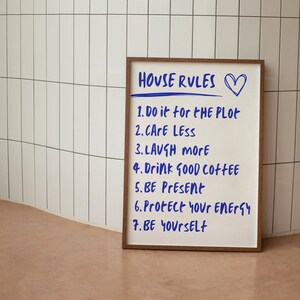 HOUSE RULES
1. DO it for tHE PLOt
2. CARE LESS
3. LAUGH more
4. Drink GOOD COFFEE
5. BE PrESEnt
6. ProtECt YOUr EnErGY
7. BE YOUrSELF